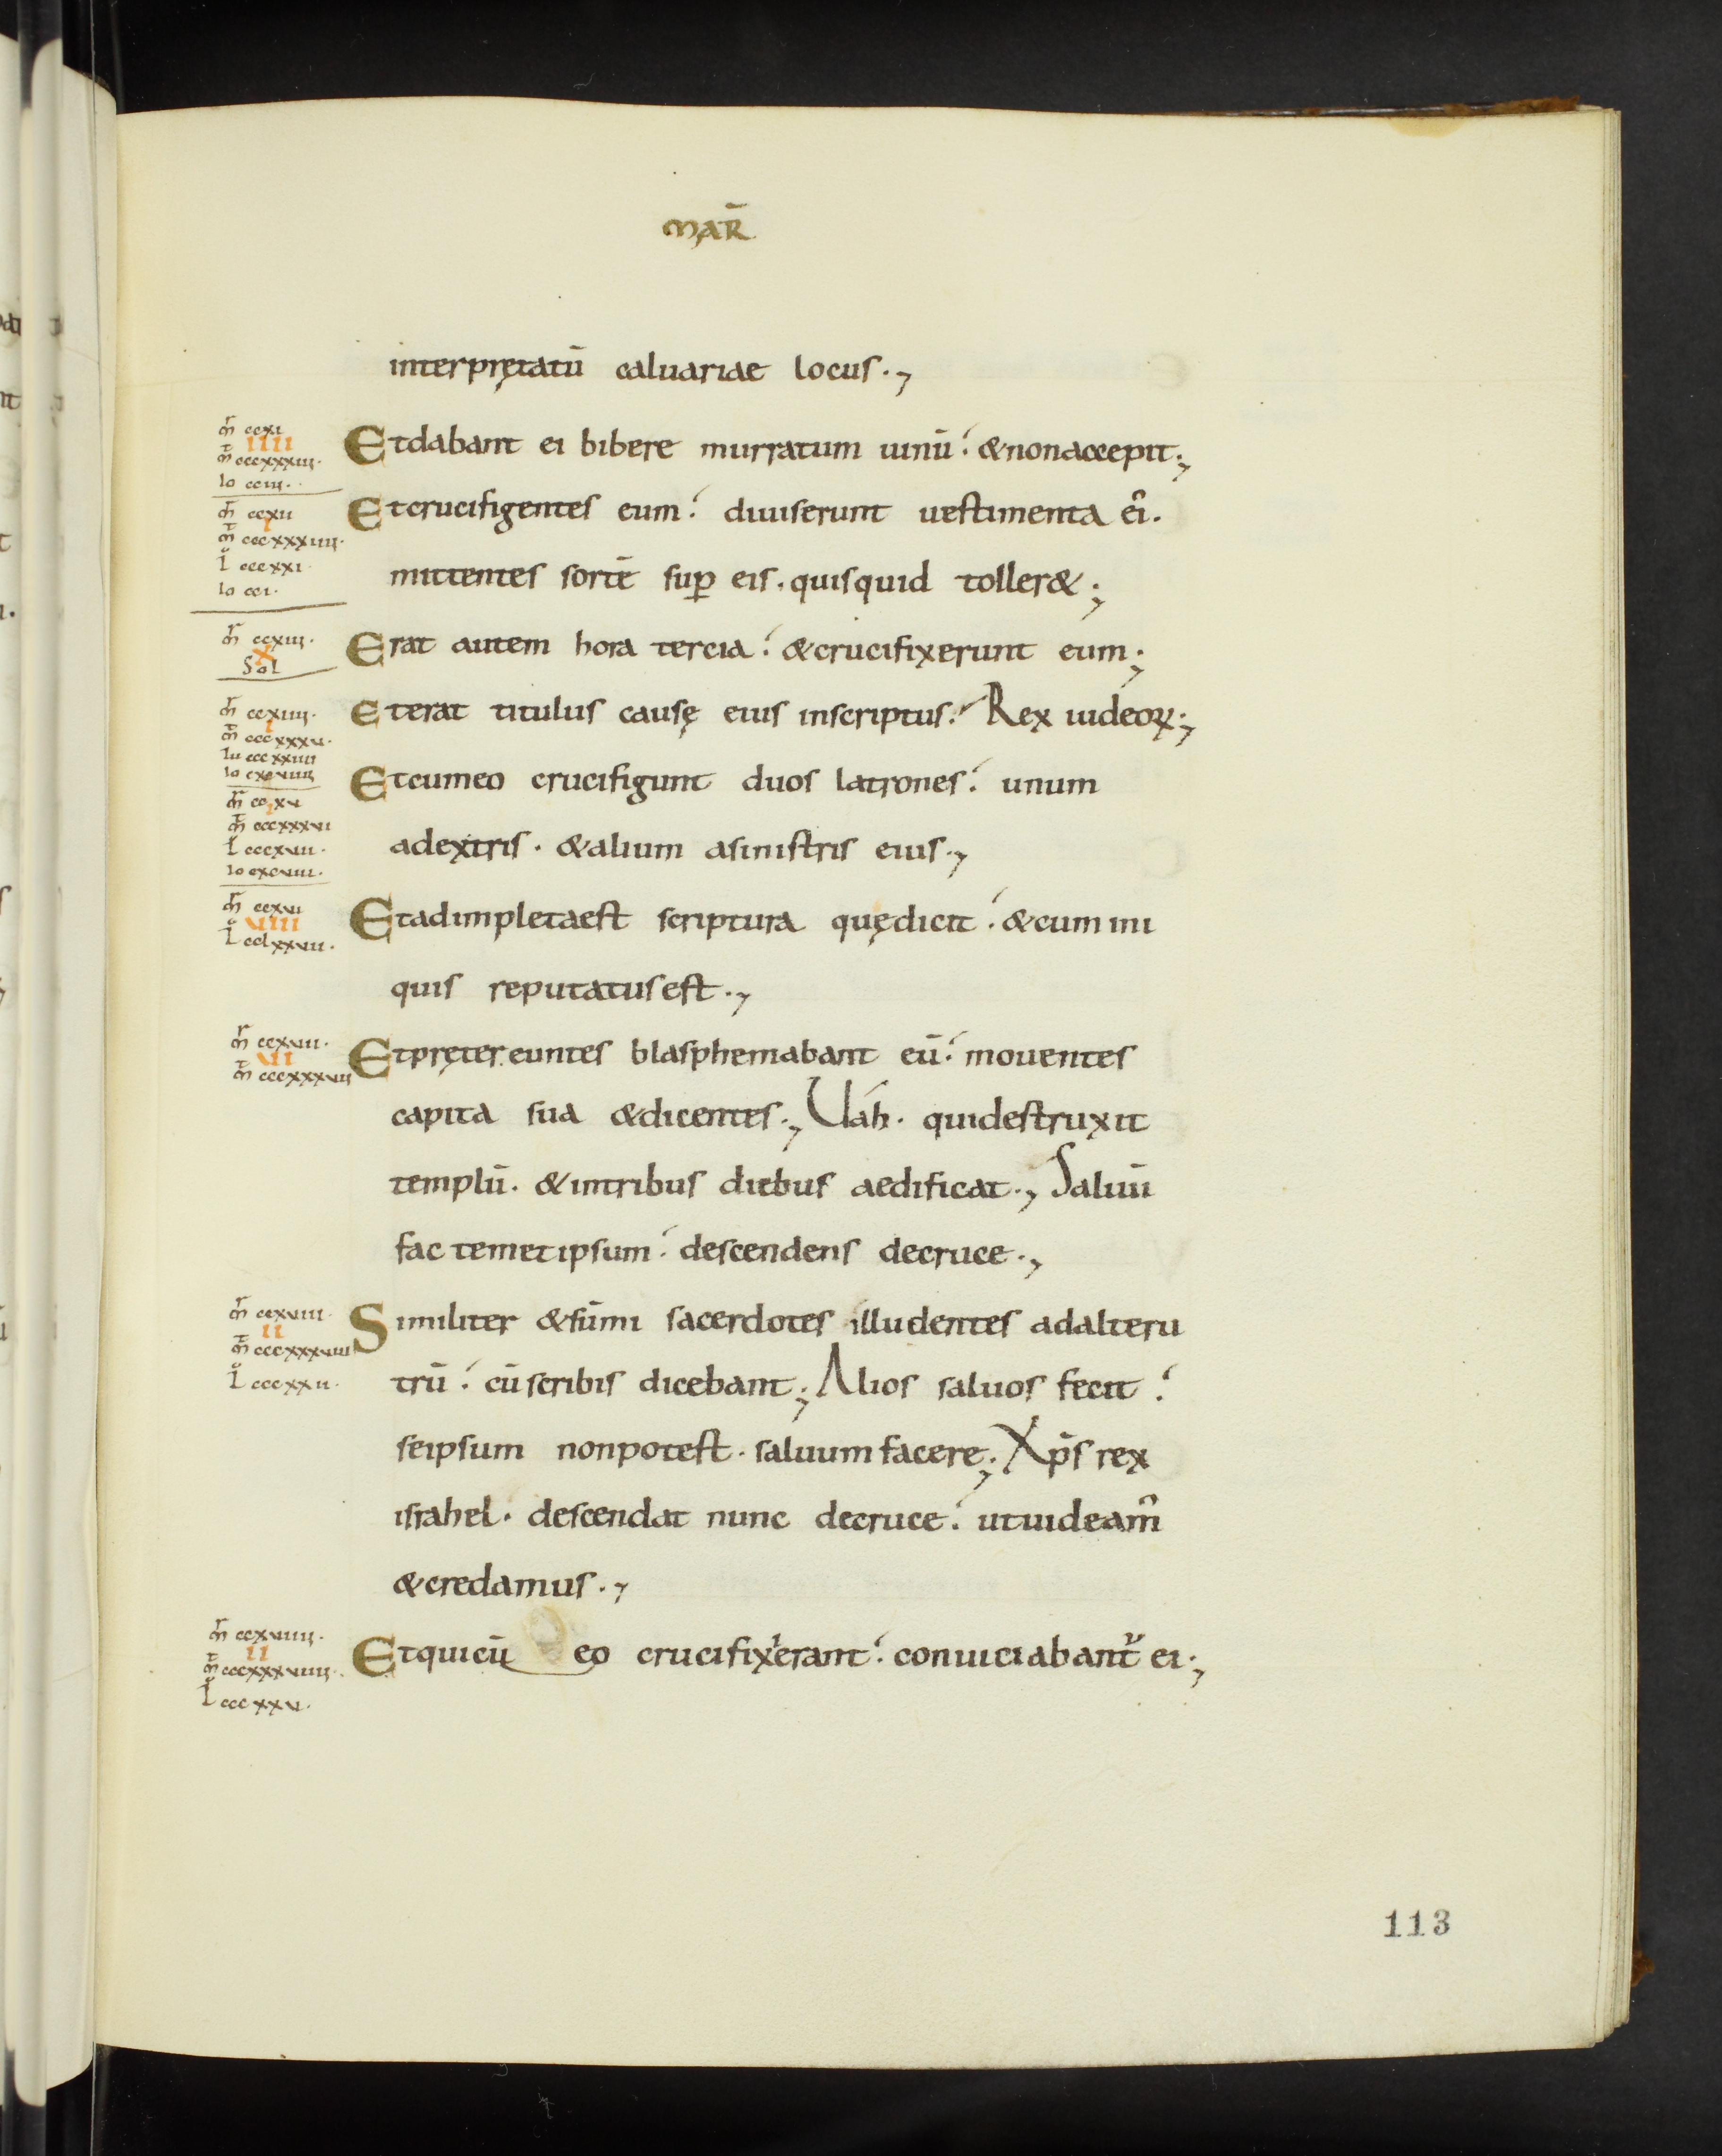 MAR̄
interprętatū caluariae locus.,
m̄r ccxi
IIII
m̄t cccxxxiii.
Io cciii.
Etdabant ei bibere murratum uinū. &nonaccepit;
m̄r ccxii
I
m̄t cccxxxiiii.
L cccxxi.
Io cci.
Etcrucifigentes eum. diuiserunt uestimenta ei᷒.
mittentes sortē suꝑ eis. quisquid toller&;
m̄r ccxiii.
X
Sol
Erat autem hora tercia. &crucifixerunt eum;
m̄r ccxiiii.
I
m̄t cccxxxv.
Lu cccxxiiii
Io cxcviiii
Eterat titulus causę eius inscriptus. Rex iudeoꝝ;
m̄r ccxv
I
m̄t cccxxxvi
L cccxvii.
Io cxcviii.
Etcumeo crucifigunt duos latrones. unum
adextris. &alium asinistris eius.,
m̄r ccxvi
VIII
L cclxxvii.
Etadimpletaest scriptura quędicit. &cum ini
quis reputatusest.,
m̄r ccxvii.
VII
m̄t cccxxxvii
Etprętereuntes blasphemabant eū. mouentes
capita sua &dicentes., Uah. quidestruxit
templū. &intribus diebus aedificat., Saluū
fac temetipsum. descendens decruce.,
m̄r ccxviii.
II
m̄t cccxxxviii
L cccxxii.
Similiter &sūmi sacerdotes illudentes adalteru
trū. cūscribis dicebant; Alios saluos fecit.
seipsum nonpotest. saluum facere; Xp̄s rex
israhel. descendat nunc decruce. utuideam᷒
&credamus.,
m̄r ccxviiii.
II
m̄t cccxxxviiii.
L cccxxv.
Etquicū eo crucifixerant. conuiciabant᷑ ei;
113